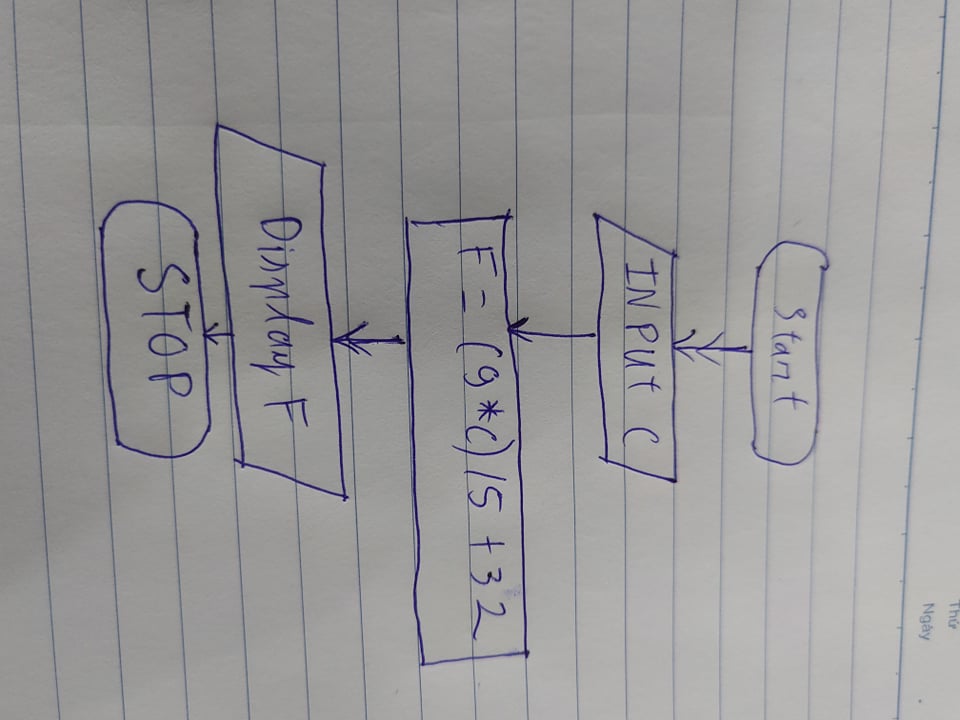 Thứ
Ngày
Start
INPUt C
F = (9*c)/5 +32
Display F
STOP